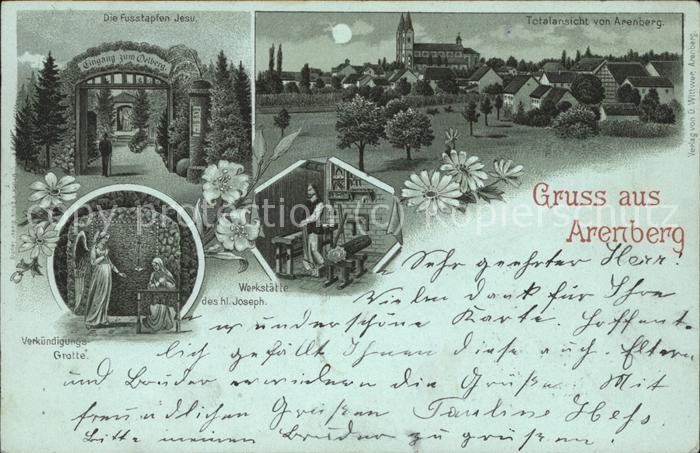 Die Fusstapfen Jesu.
Totalansicht von Arenberg.
Eingang zum Oelberg
Verlag von D. Wittwer, Arenberg.
Gruss aus
Arenberg
Werkstätte
des hl. Joseph.
Verkündigungs-
Grotte.
Sehr geehrter Herr!
Vielen dank für Ihre
wunderschöne Karte. Hoffent
lich gefällt Ihnen diese auch. Eltern
und Bruder erwiedern die Grüße. Mit
freundlichen Grüßen Pauline Hess.
Bitte meinen Bruder zu grüßen!
copyright-protected Kopierschutz